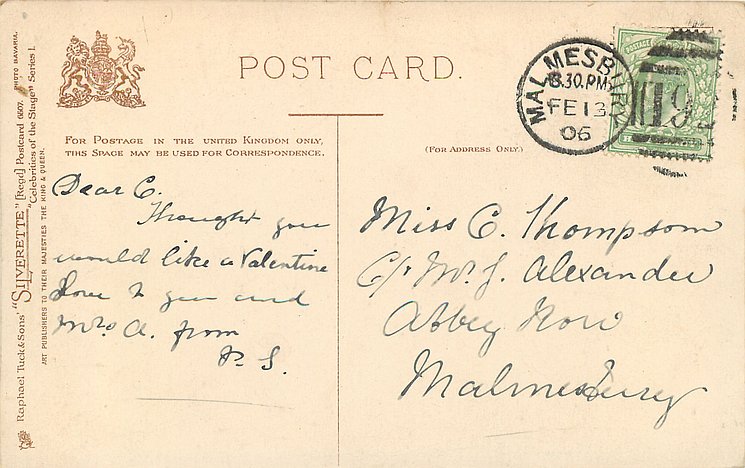 POST CARD.
MALMESBURY
8.30.PM
FE 13
06
19
FOR POSTAGE IN THE UNITED KINGDOM ONLY,
THIS SPACE MAY BE USED FOR CORRESPONDENCE.
(FOR ADDRESS ONLY.)
Dear C.
Thought you
would like a Valentine
Love to you and
Mrs A. from
P. S.
Miss C. Thompson
C/o Mr J. Alexander
Abbey Row
Malmesbury
Raphael Tuck & Sons' "SILVERETTE" [Regd] Postcard 6607. PHOTO BAVARIA.
"Celebrities of the Stage" Series I.
ART PUBLISHERS TO THEIR MAJESTIES THE KING & QUEEN.